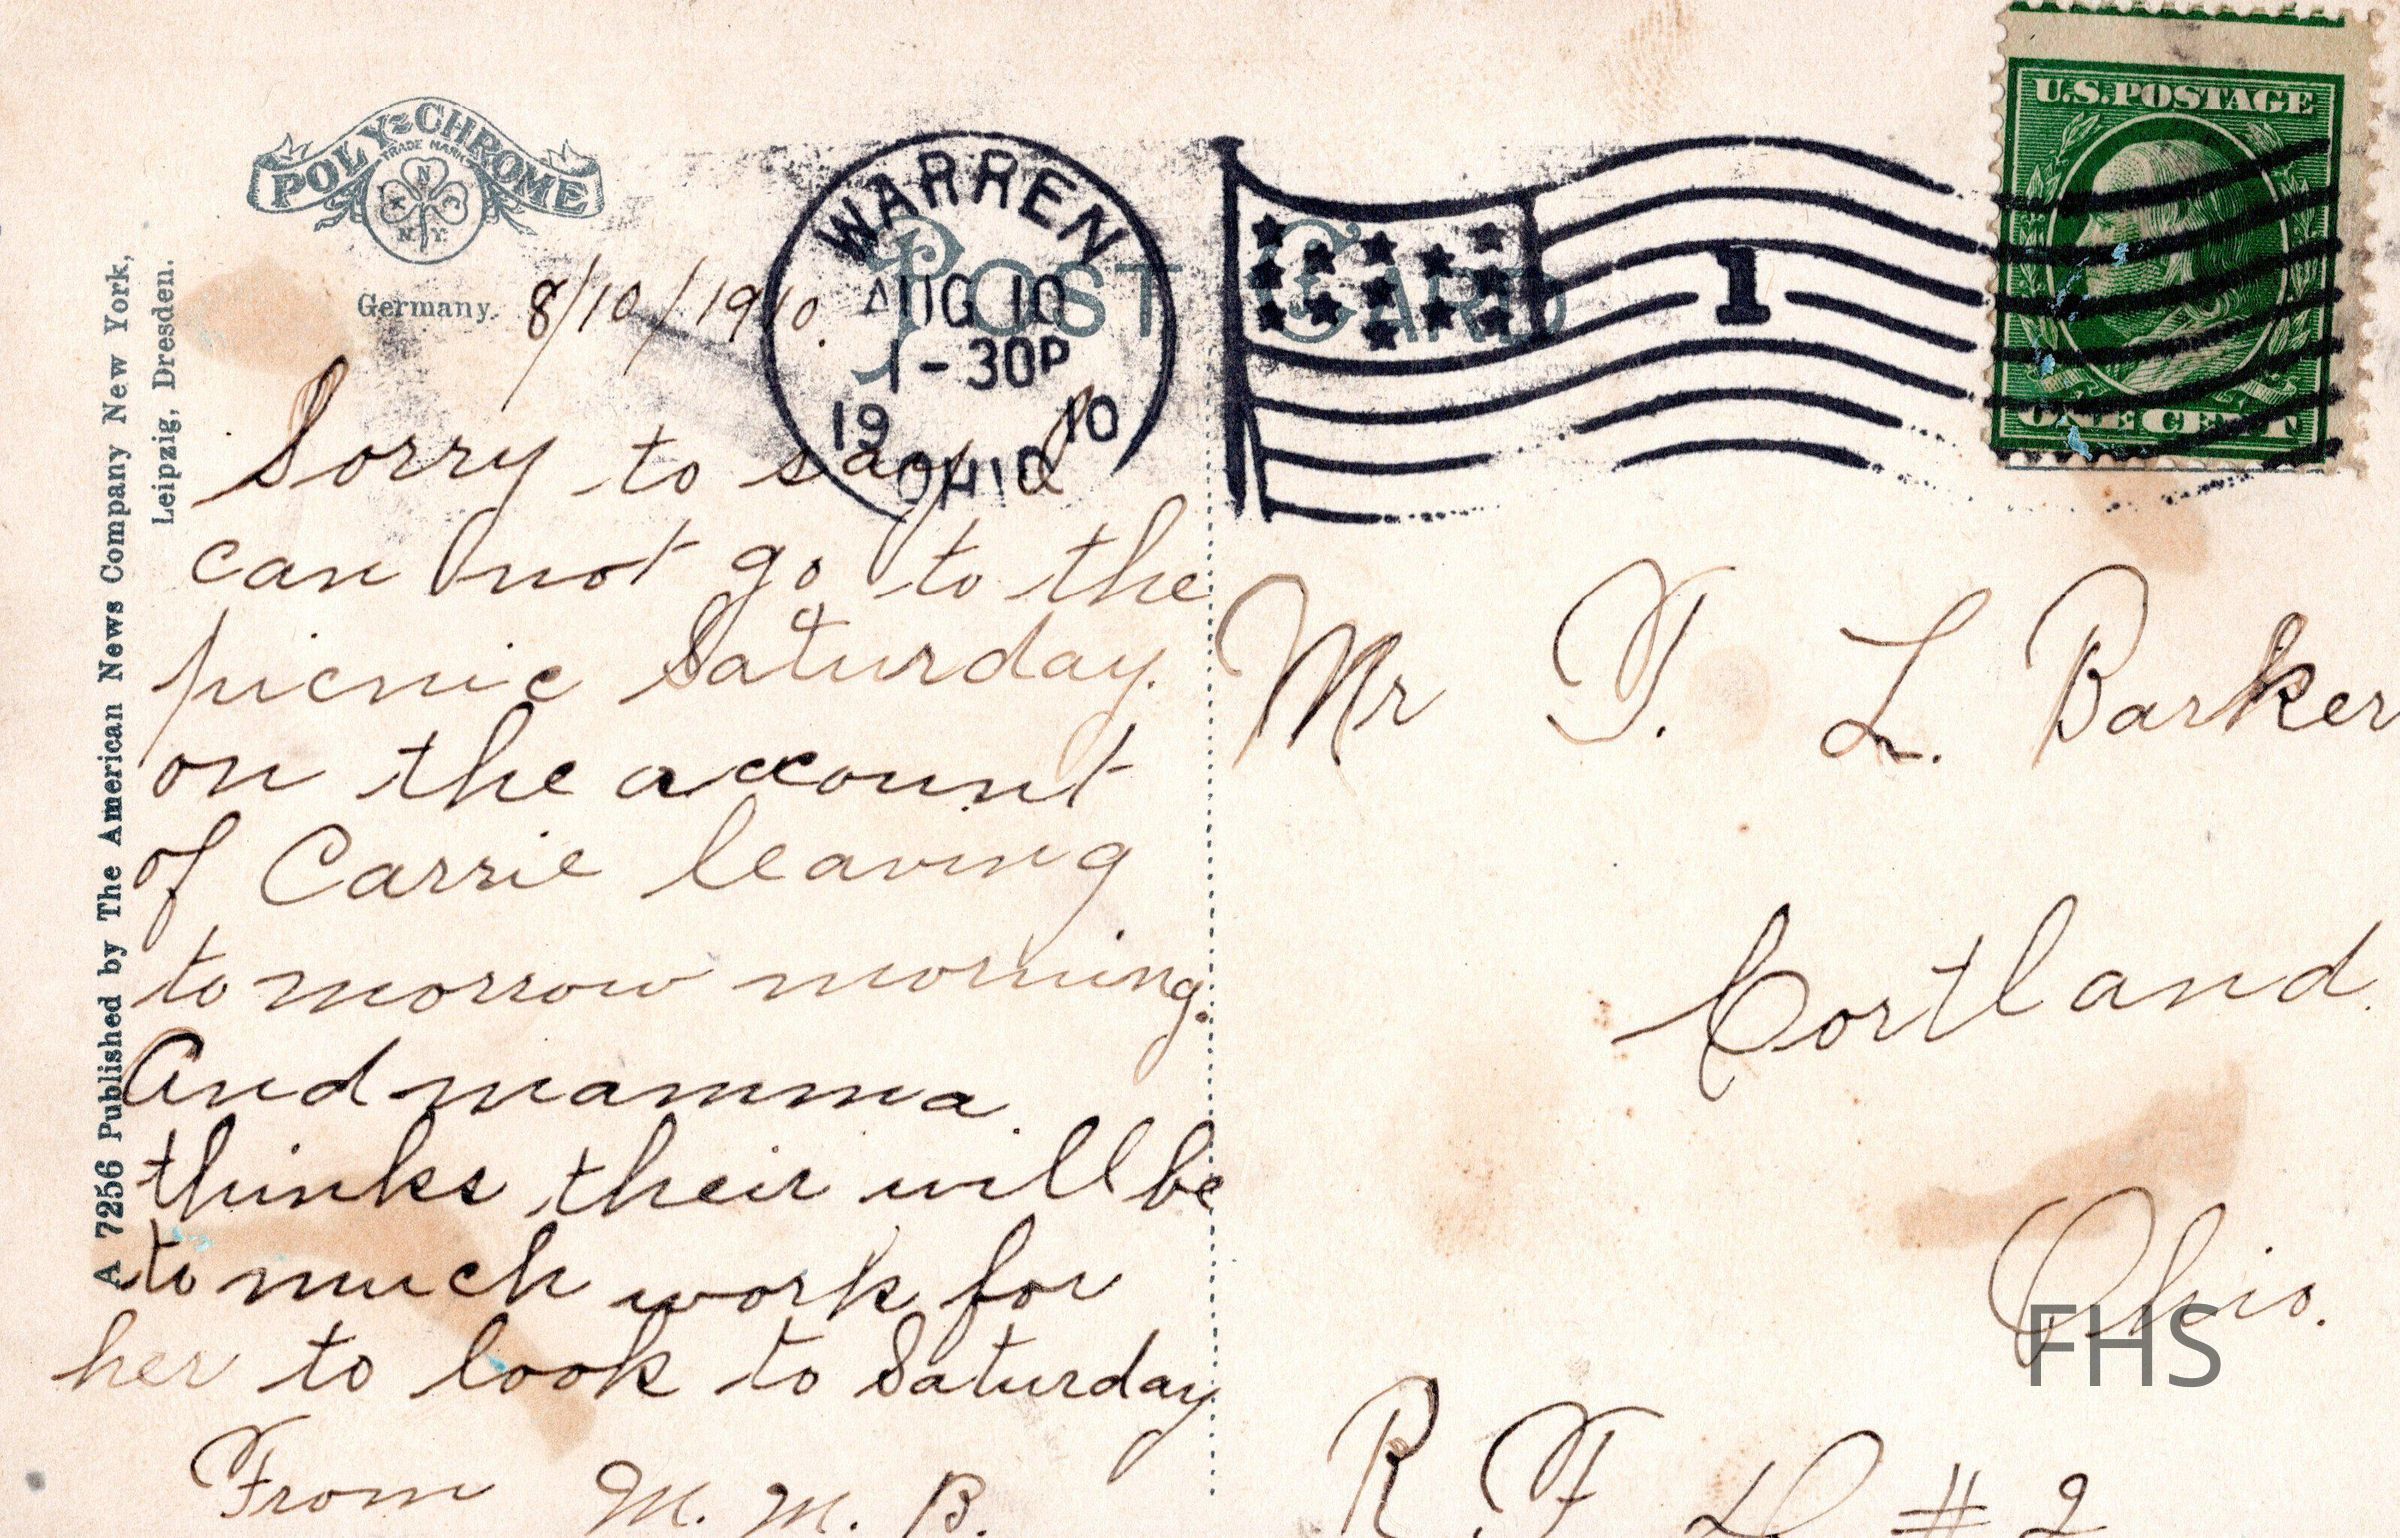 POLY-CHROME
TRADE MARK
A N C
N.Y.
Germany.
A 7256 Published by The American News Company New York,
Leipzig, Dresden.
POST CARD
WARREN
AUG 10
1-30P
19 10
OHIO
1
U.S. POSTAGE
ONE CENT
8/10/1910.
Sorry to say I
can not go to the
picnic Saturday.
on the account
of Carrie leaving
to morrow morning.
And mamma
thinks their will be
to much work for
her to look to Saturday
From M. M. B.
Mr T. L. Barker
Cortland.
Ohio.
R. F D # 2
FHS